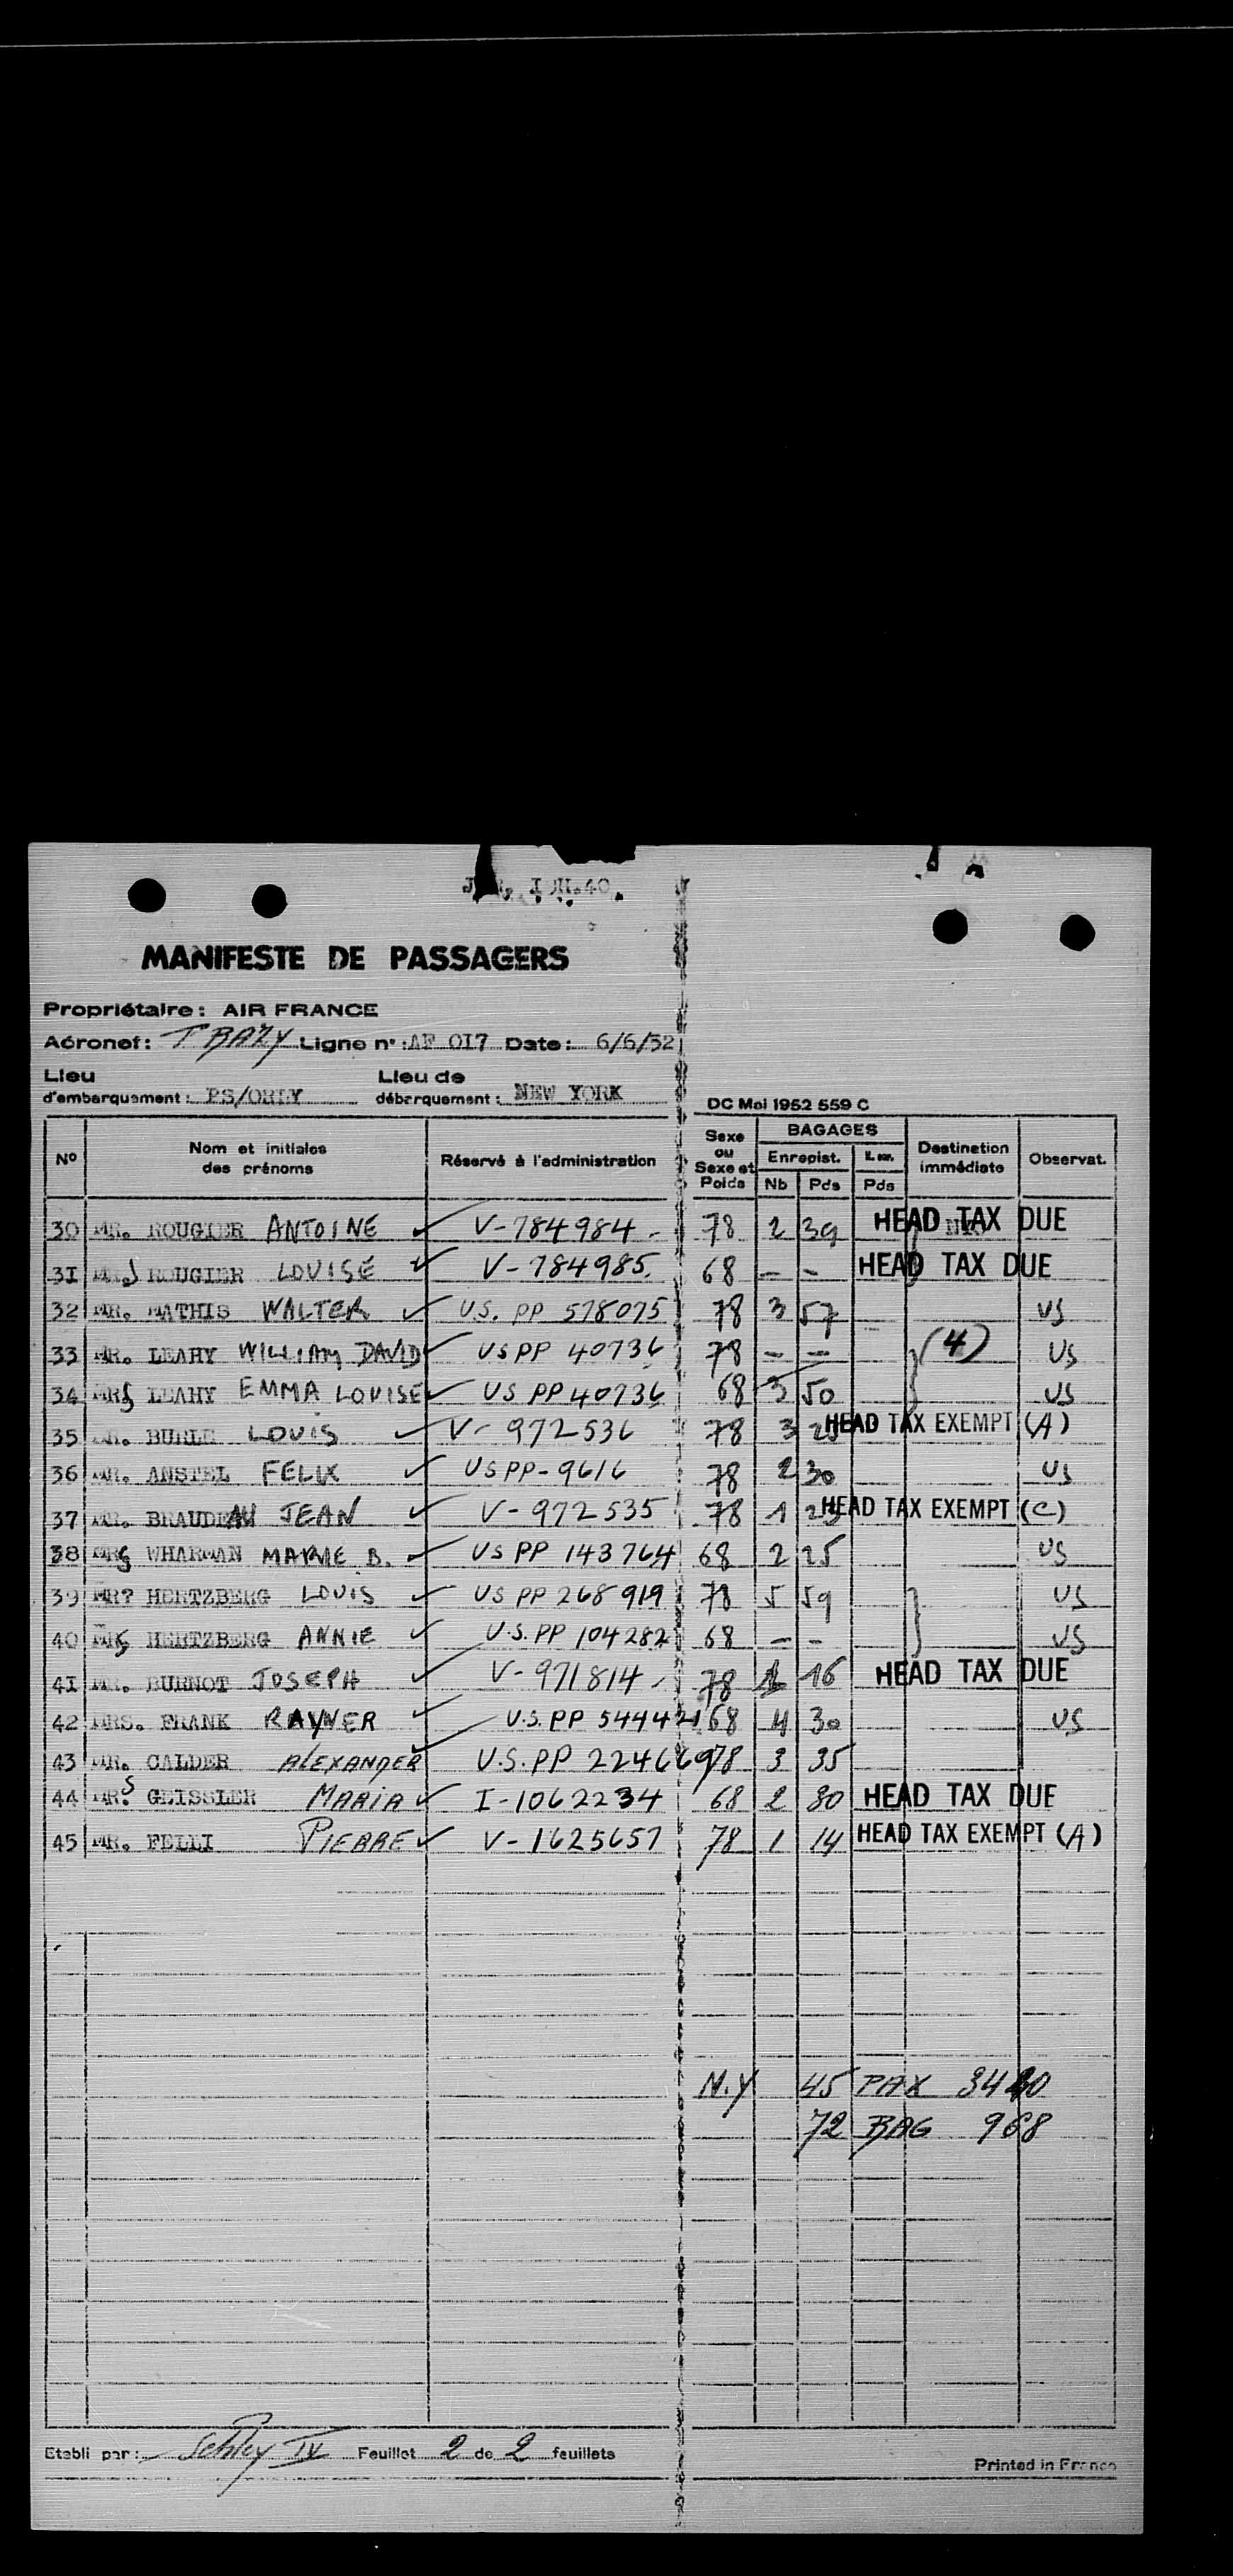 MANIFESTE DE PASSAGERS
Propriétaire: AIR FRANCE
Aéronef: Ligne n°: AF 017 Date: 6/6/52
Lieu d'embarquement: PS/ORLY Lieu de débarquement: NEW YORK
DC Mai 1952 559 C
N° Nom et initiales des prénoms Réservé à l'administration Sexe ou Sexe et Poids BAGAGES Enregist. Nb Pds Pds Destination immédiate Observat.
30 MR. ROUGIER ANTOINE V-784984 - 78 2 39 HEAD TAX DUE
31 ROUGIER LOUISE V-784985. 68 - - HEAD TAX DUE
32 MR. MATHIS WALTER U.S. PP 578075 78 3 57 US
33 MR. LEAHY WILLIAM DAVID US PP 40736 78 - - (4) US
34 MRS LEAHY EMMA LOUISE US PP 40736 68 3 50 US
35 MR. BURLE LOUIS V-972536 78 3 HEAD TAX EXEMPT (A)
36 MR. ANSTEL FELIX US PP-9616 78 2 30 US
37 MR. BRAUDEAU JEAN V-972535 78 1 HEAD TAX EXEMPT (C)
38 MRS WHARMAN B. US PP 143764 68 2 25 US
39 MR HERTZBERG LOUIS US PP 268919 78 5 59 US
40 MRS HERTZBERG ANNIE U.S. PP 104282 68 - - US
41 MR. BURNOT JOSEPH V-971814 - 78 1 16 HEAD TAX DUE
42 MRS. FRANK RAYNER U.S. PP 544421 68 4 30 US
43 MR. CALDER ALEXANDER U.S. PP 224669 78 3 35
44 MRS GEISSLER MARIA I-1062234 68 2 80 HEAD TAX DUE
45 MR. FELLI PIERRE V-1625657 78 1 14 HEAD TAX EXEMPT (A)
N.Y 45 PAX
72 BAG 968
Etabli par: Feuillet 2 de 2 feuillets
Printed in France